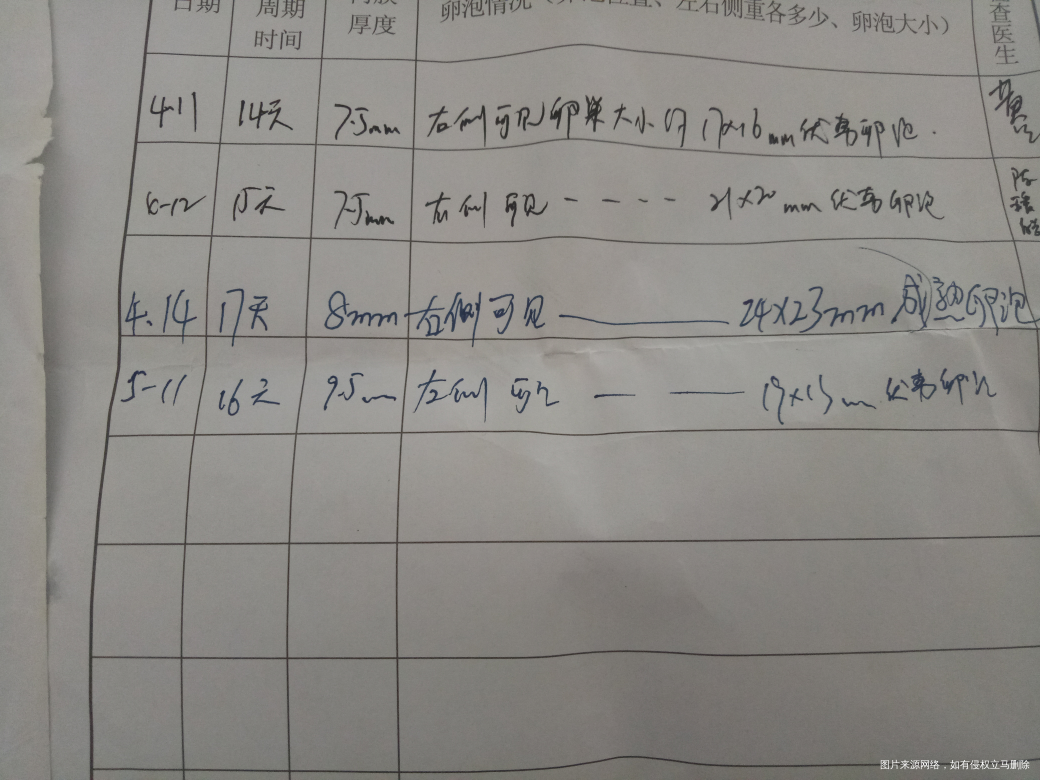 日期 周期时间 内膜厚度 卵泡情况（卵泡位置、左右侧重各多少、卵泡大小） 查医生
4.11 14天 7.5mm 右侧可见卵巢大小约17x16mm优势卵泡.
4-12 15天 7.5mm 右侧可见 - - - - 21x20mm优势卵泡
4.14 17天 8mm 右侧可见 —— 24x23mm成熟卵泡
5-11 16天 9.5mm 左侧可见 — — 19x15mm优势卵泡
图片来源网络，如有侵权立马删除